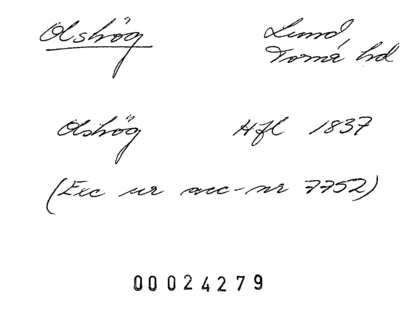 Olshög Lund,
Torna hd
Olshög Hfl 1837
(Exc ur acc-nr 7752)
00024279